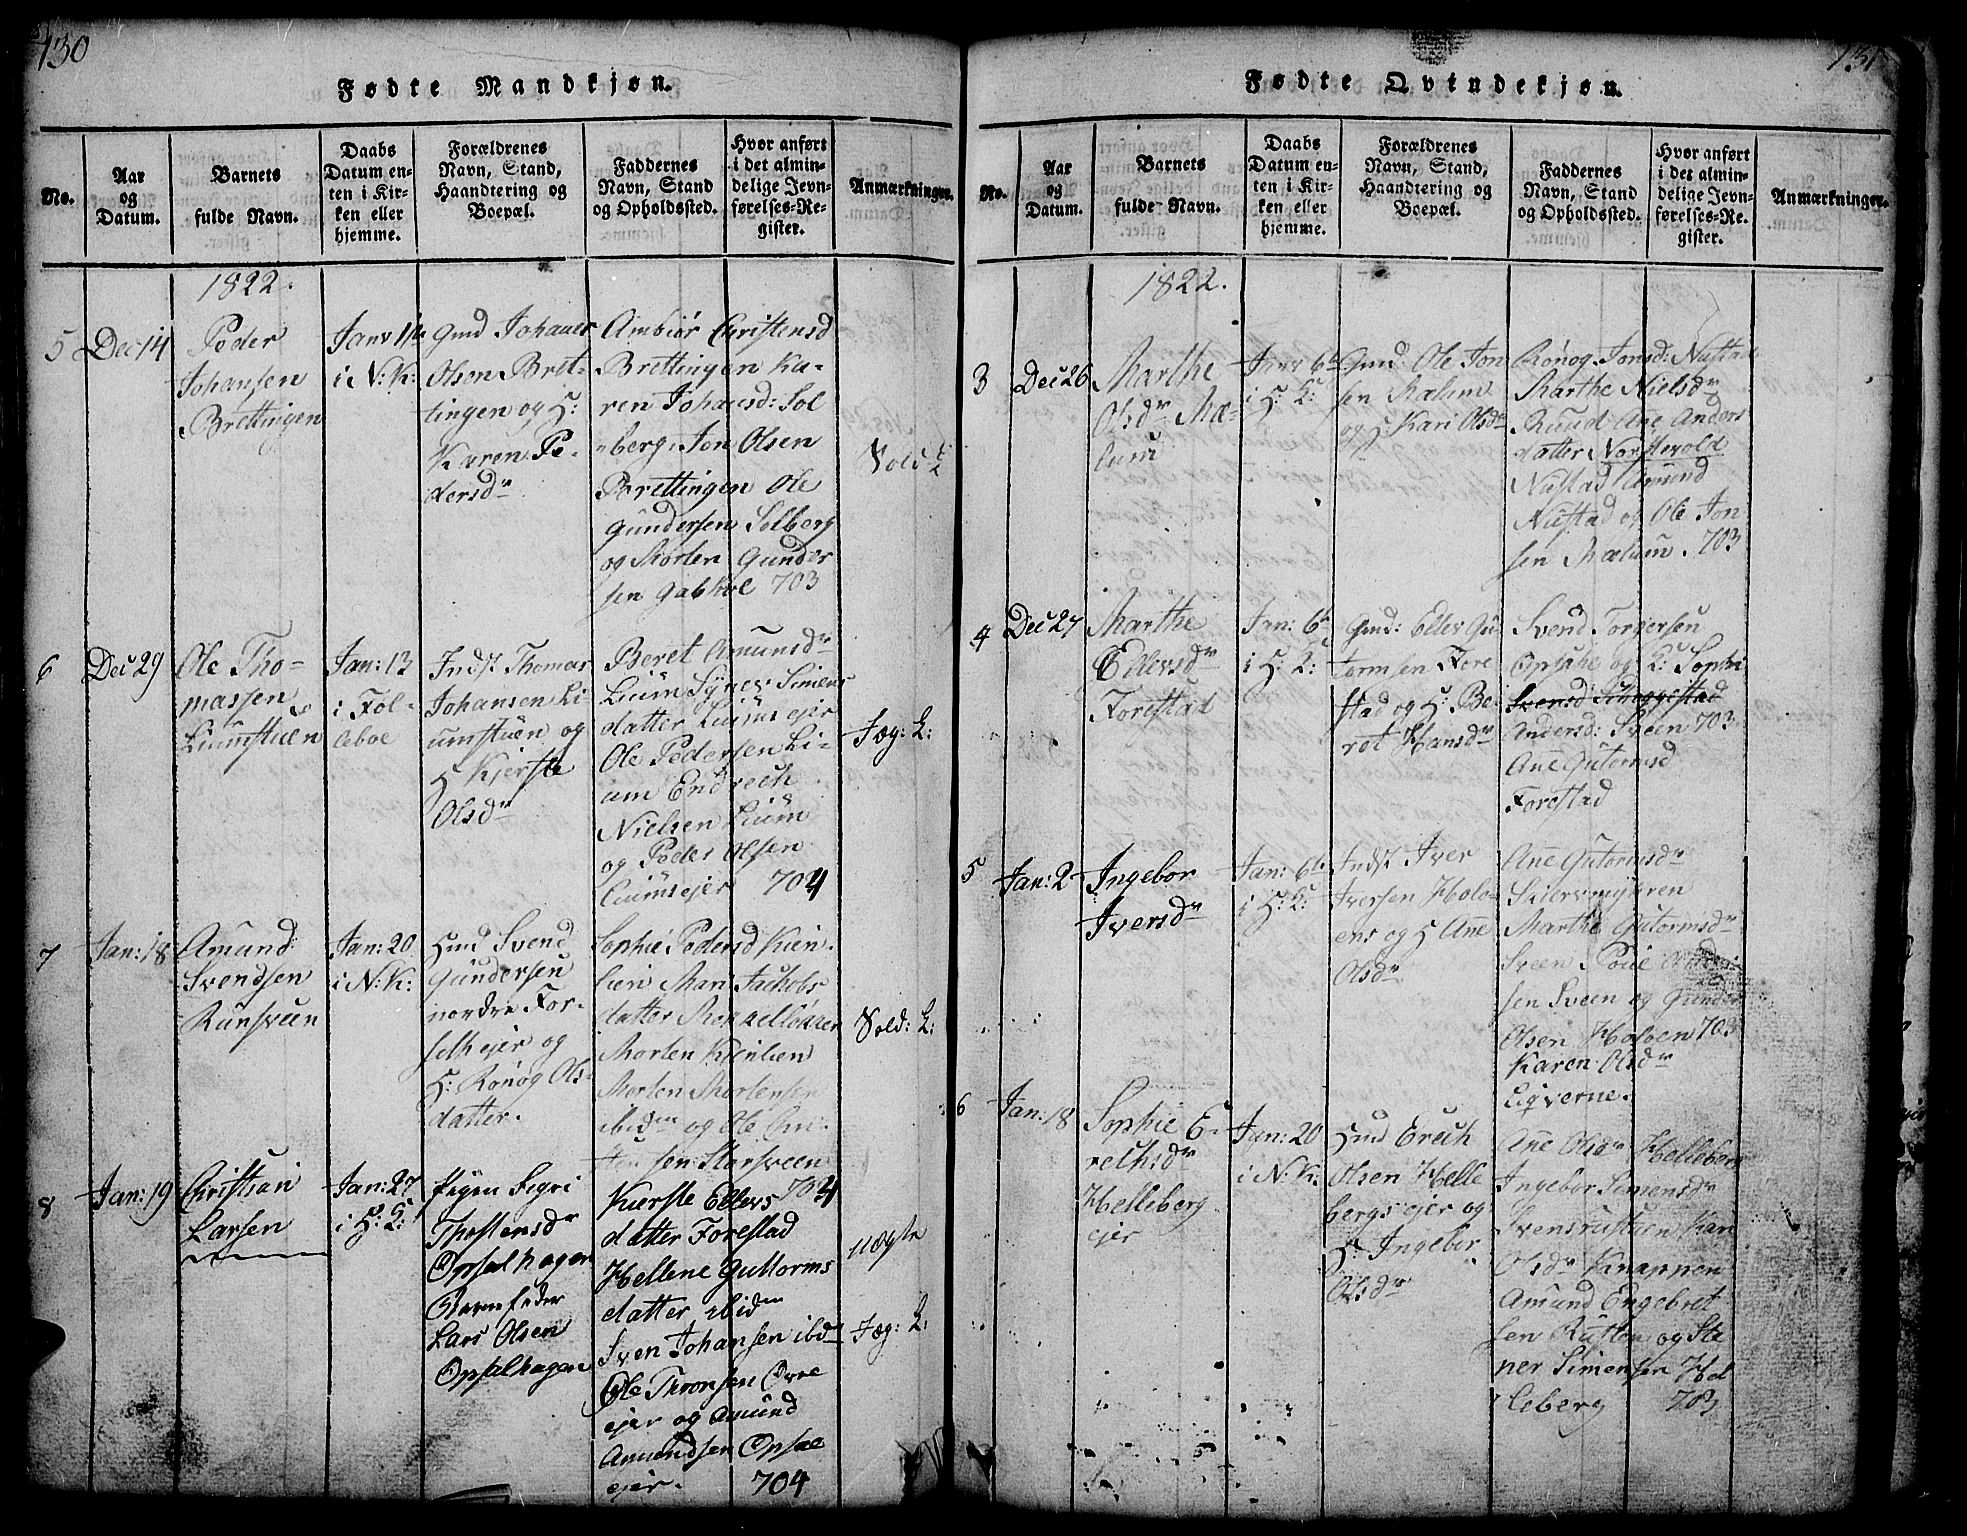 130
Fødte Mandkjøn.
No.
Aar
og
Datum.
Barnets
fulde Navn.
Daabs
Datum en-
ten i Kir-
ken eller
hjemme.
Forældrenes
Navn, Stand,
Haandtering og
Boepæl.
Faddernes
Navn, Stand
og Opholdssted.
Hvor anført
i det almin-
delige Jevn-
førelses-Re-
gister.
Anmærkninger.
1822.
5
Dec 14
Peder
Johansen
Brettingen
Janv
i N: K:
Gmd Johanes
Olsen Bret-
tingen og H:
Karen Pe-
dersdr
Ambiør Christensd
Brettingen Ka-
ren Johansd: Sol
berg, Jon Olsen
Brettingen Ole
Gundersen Solberg
og Morten Gunder
sen 703
6
Dec 29
Ole Tho-
massen
Liumstuen
Jan: 13
i Fol-
leboe
Indst Thomas
Johansen Li
umstuen og
H Kjerste
Olsdr
Beret Amundsdr
Lium Synev Simens
datter Liums ejer
Ole Pedersen Li-
um Endrech
Nielsen Lium
og Peder Olsen
Liums ejer 704
Jæg: L:
7
Jan: 18
Amund
Svendsen
Runsveen
Jan: 20
i N: K:
Hmd Svend
Gundersen
nordre For-
seth ejer og
H: Rønog Ols-
datter.
Sophie Pedersd Kien
lien Mari Jachobs
datter
Morten Kienlien
Morten Mortensen
ibidm og Ole
sen Storsveen
704
Sold: L:
8
Jan: 19
Christian
Larsen
Jan: 27
i H: L:
Pigen Sigri
Thostensdr
Opsalhagen
Barnefader
Lars Olsen
Opsalhagen
Kierste Ellevs
datter Forestad
Hellene Guttorms
datter ibidm
Sven Johansen ibdm
Ole Thronsen Øvre
ejer og Amund
Amundsen Opsal
ejer.
704
uægte
Jæg: L:
131
Fødte Qvindekjøn.
No.
Aar
og
Datum.
Barnets
fulde Navn.
Daabs
Datum en-
ten i Kir-
ken eller
hjemme.
Forældrenes
Navn, Stand,
Haandtering og
Boepæl.
Faddernes
Navn, Stand
og Opholdssted.
Hvor anført
i det almin-
delige Jevn-
førelses-Re-
gister.
Anmærkninger.
1822.
3
Dec 26
Marthe
Olsdr Mæ-
lum
Janv 6te
i H: L:
Gmd: Ole Jon
sen Mælum
og H: Kari Olsdr
Rønog Jonsd: Nustad
Marthe Nielsdr
Ruud Ane Anders
datter
Nustad Amund
Nustad og Ole Jon
sen Mælum. 703
4
Dec 27
Marthe
Ellevsdr
Forestad
Jan: 6te
i H: L:
Gmd: Ellev Gu
tormsen Fore
stad og H: Be-
ret Hansdr
Svend Torgersen
og K: Sophi
Andersd: Sveen 703
Ane Gutormsd
Forestad
5
Jan: 2
Ingebor
Iversdr
Jan: 6te
i H: L:
Indst Iver
Iversen Holo-
ens og H Ane
Olsdr
Ane Gutormsdr
Skiervmyren
Marthe Gutormsdr
Sveen
sen Sveen og Gunder
Olsen Holoen 703
Karen Olsdr
6
Jan: 18
Sophie E-
rechsdr
Helleberg
ejer
Jan: 20
i N: K:
Hmd Erech
Olsen Helle
bergs ejer og
H: Ingebor
Olsdr
Ane Olsdr Helleberg
Ingebor Simensdr
Svensrustuen Kari
Olsdr Knappen
Amund Engebret
sen Rusten og Ste
ner Simensen Hel
leberg 703